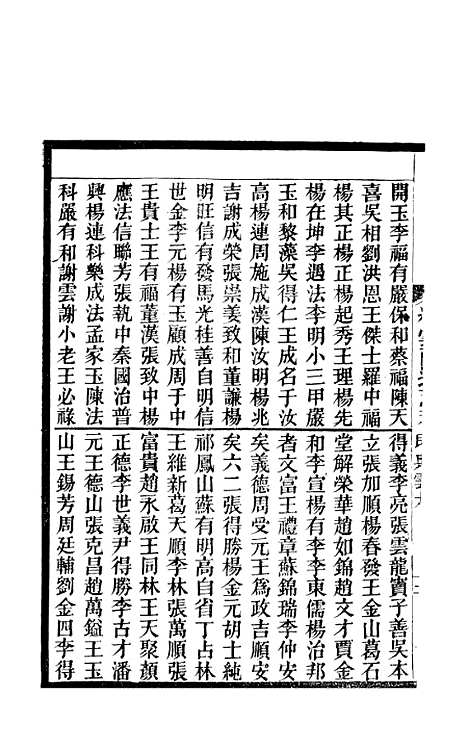 開玉李福有嚴保和蔡福陳天
喜吳相劉洪恩王傑士羅中福
楊其正楊正楊起秀王理楊先
楊在坤李遇法李明小三甲嚴
玉和黎藻吳得仁王成名于汝
高楊連周施成漢陳汝明楊兆
吉謝成榮張崇姜致和董謙楊
明旺信有發馬光桂善自明信
世金李元楊有玉顧成周于中
王貴士王有福董漢張致中楊
應法信聯芳張執中秦國治普
興楊連科樂成法孟家玉陳法
科嚴有和謝雲謝小老王必祿
得義李亮張雲龍竇子善吳本
立張加順楊春發王金山葛石
堂解榮華趙如錦趙文才賈金
和李宣楊有李李東儒楊治邦
者文富王禮章蘇錦瑞李仲安
矣義德周受元王爲政吉順安
矣六二張得勝楊金元胡士純
祁鳳山蘇有明高自省丁占林
王維新葛天順李林張萬順張
富貴趙永啟王同林王天聚顏
正德李世義尹得勝李古才潘
元王德山張克昌趙萬鎰王玉
山王錫芳周廷輔劉金四李得